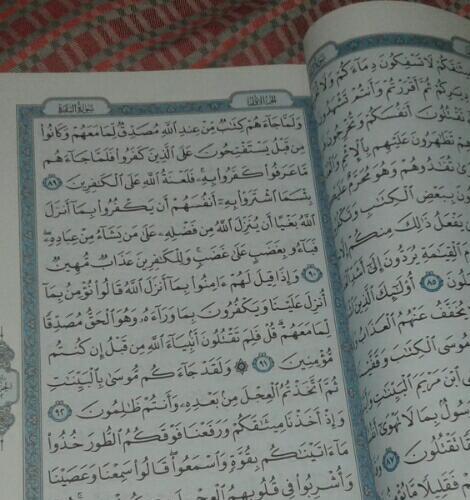 لَا تَسْفِكُونَ دِمَآءَكُمْ وَلَا
ثُمَّ أَقْرَرْتُمْ وَأَنتُمْ تَشْهَدُونَ
تَقْتُلُونَ أَنفُسَكُمْ وَتُخْرِجُونَ
تَظَٰهَرُونَ عَلَيْهِم بِٱلْإِثْمِ
تُفَٰدُوهُمْ وَهُوَ مُحَرَّمٌ
بِبَعْضِ ٱلْكِتَٰبِ
يَفْعَلُ ذَٰلِكَ مِنكُمْ
ٱلْقِيَٰمَةِ يُرَدُّونَ إِلَىٰٓ
٨٥ أُو۟لَٰٓئِكَ ٱلَّذِينَ
يُخَفَّفُ عَنْهُمُ ٱلْعَذَابُ
مُوسَى ٱلْكِتَٰبَ
ٱبْنَ مَرْيَمَ ٱلْبَيِّنَٰتِ
رَسُولٌۢ بِمَا لَا تَهْوَىٰٓ
تَقْتُلُونَ ٨٧
فَقَلِيلًا مَّا
الجزء الأول
سورة البقرة
وَلَمَّا جَآءَهُمْ كِتَٰبٌ مِّنْ عِندِ ٱللَّهِ مُصَدِّقٌ لِّمَا مَعَهُمْ وَكَانُوا۟
مِن قَبْلُ يَسْتَفْتِحُونَ عَلَى ٱلَّذِينَ كَفَرُوا۟ فَلَمَّا جَآءَهُم
مَّا عَرَفُوا۟ كَفَرُوا۟ بِهِۦ فَلَعْنَةُ ٱللَّهِ عَلَى ٱلْكَٰفِرِينَ ٨٩
بِئْسَمَا ٱشْتَرَوْا۟ بِهِۦٓ أَنفُسَهُمْ أَن يَكْفُرُوا۟ بِمَآ أَنزَلَ
ٱللَّهُ بَغْيًا أَن يُنَزِّلَ ٱللَّهُ مِن فَضْلِهِۦ عَلَىٰ مَن يَشَآءُ مِنْ عِبَادِهِۦ
فَبَآءُو بِغَضَبٍ عَلَىٰ غَضَبٍ وَلِلْكَٰفِرِينَ عَذَابٌ مُّهِينٌ
٩٠ وَإِذَا قِيلَ لَهُمْ ءَامِنُوا۟ بِمَآ أَنزَلَ ٱللَّهُ قَالُوا۟ نُؤْمِنُ بِمَآ
أُنزِلَ عَلَيْنَا وَيَكْفُرُونَ بِمَا وَرَآءَهُۥ وَهُوَ ٱلْحَقُّ مُصَدِّقًا
لِّمَا مَعَهُمْ قُلْ فَلِمَ تَقْتُلُونَ أَنۢبِيَآءَ ٱللَّهِ مِن قَبْلُ إِن كُنتُم
مُّؤْمِنِينَ ٩١ ۞ وَلَقَدْ جَآءَكُم مُّوسَىٰ بِٱلْبَيِّنَٰتِ
ثُمَّ ٱتَّخَذْتُمُ ٱلْعِجْلَ مِنۢ بَعْدِهِۦ وَأَنتُمْ ظَٰلِمُونَ ٩٢
وَإِذْ أَخَذْنَا مِيثَٰقَكُمْ وَرَفَعْنَا فَوْقَكُمُ ٱلطُّورَ خُذُوا۟
مَآ ءَاتَيْنَٰكُم بِقُوَّةٍ وَٱسْمَعُوا۟ قَالُوا۟ سَمِعْنَا وَعَصَيْنَا
وَأُشْرِبُوا۟ فِى قُلُوبِهِمُ ٱلْعِجْلَ